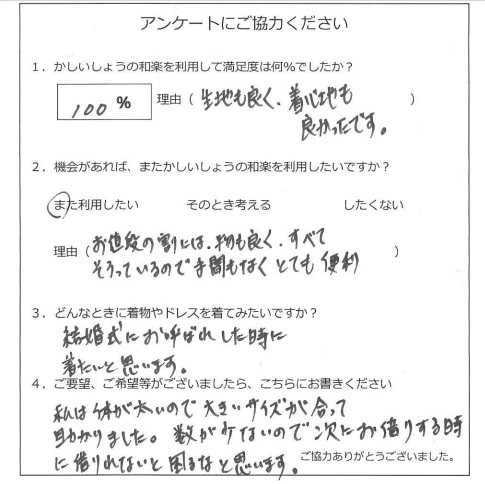 アンケートにご協力ください
1．かしいしょうの和楽を利用して満足度は何%でしたか？
100 % 理由（ 生地も良く、着心地も ）
良かったです。
2．機会があれば、またかしいしょうの和楽を利用したいですか？
また利用したい そのとき考える したくない
お値段の割には、物も良く、すべて
理由（ そろっているので手間もなくとても便利 ）
3．どんなときに着物やドレスを着てみたいですか？
結婚式にお呼ばれした時に
着たいと思います。
4．ご要望、ご希望等がございましたら、こちらにお書きください
私は体が太いので大きいサイズが合って
助かりました。数が少ないので次にお借りする時
に借りれないと困るなと思います。
ご協力ありがとうございました。